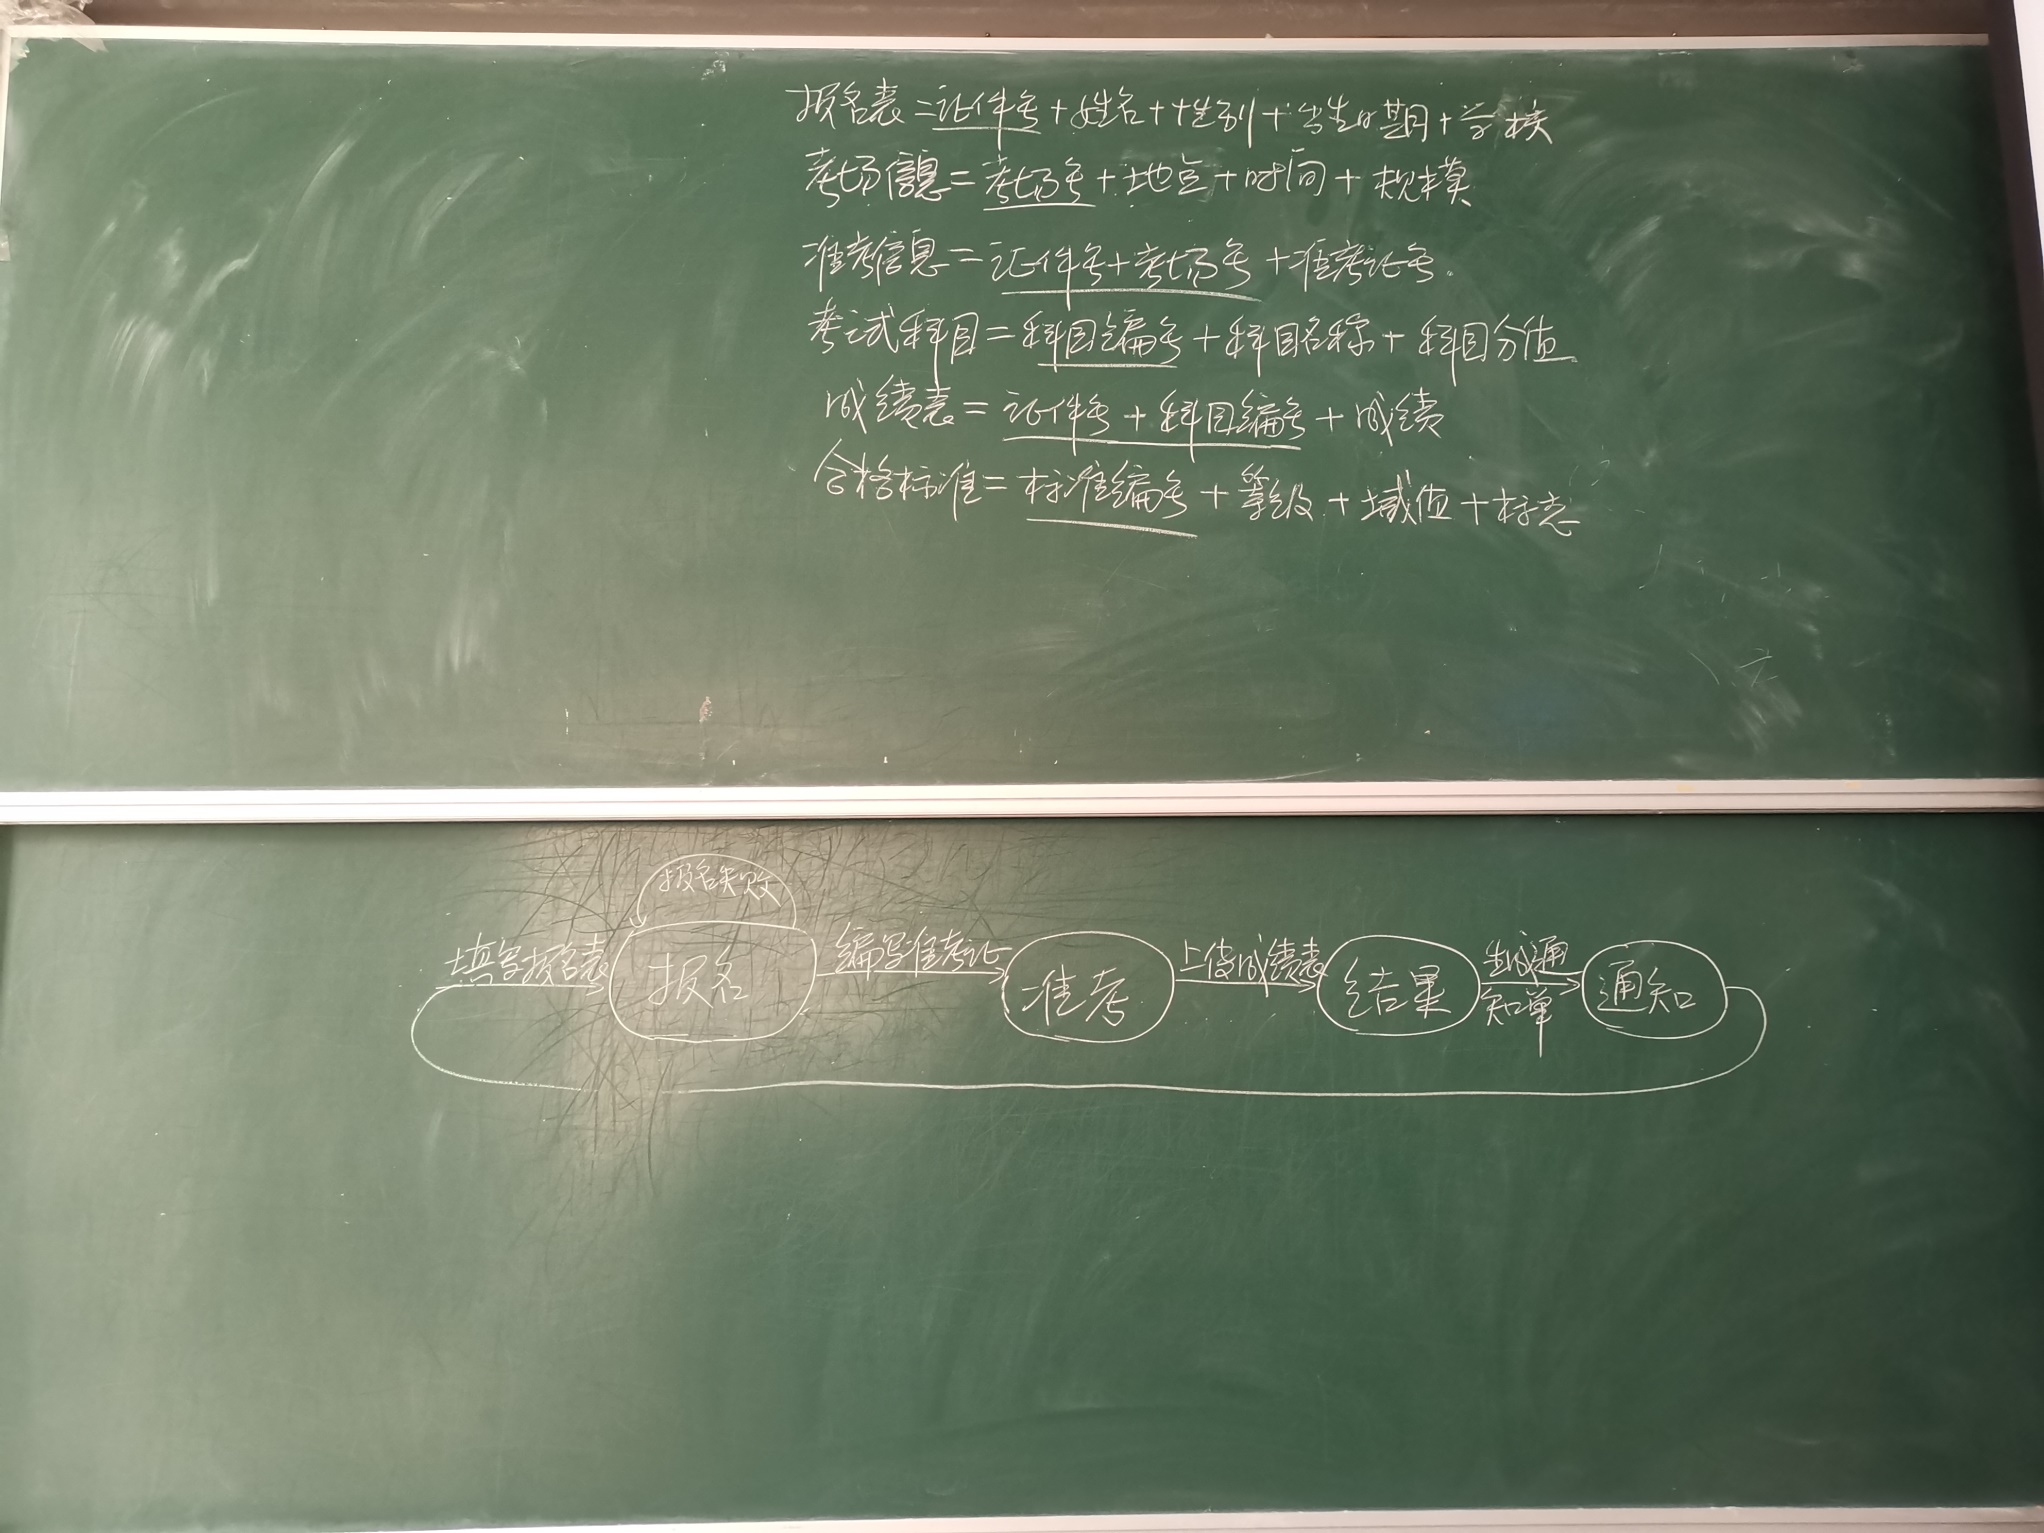 报名表=证件号+姓名+性别+出生日期+学校
考场信息=考场号+地点+时间+规模
准考信息=证件号+考场号+准考证号.
考试科目=科目编号+科目名称+科目分值
成绩表=证件号+科目编号+成绩
合格标准=标准编号+等级+域值+标志
报名失败
填写报名表
报名
编写准考证
准考
上传成绩表
结果
生成通
知单
通知